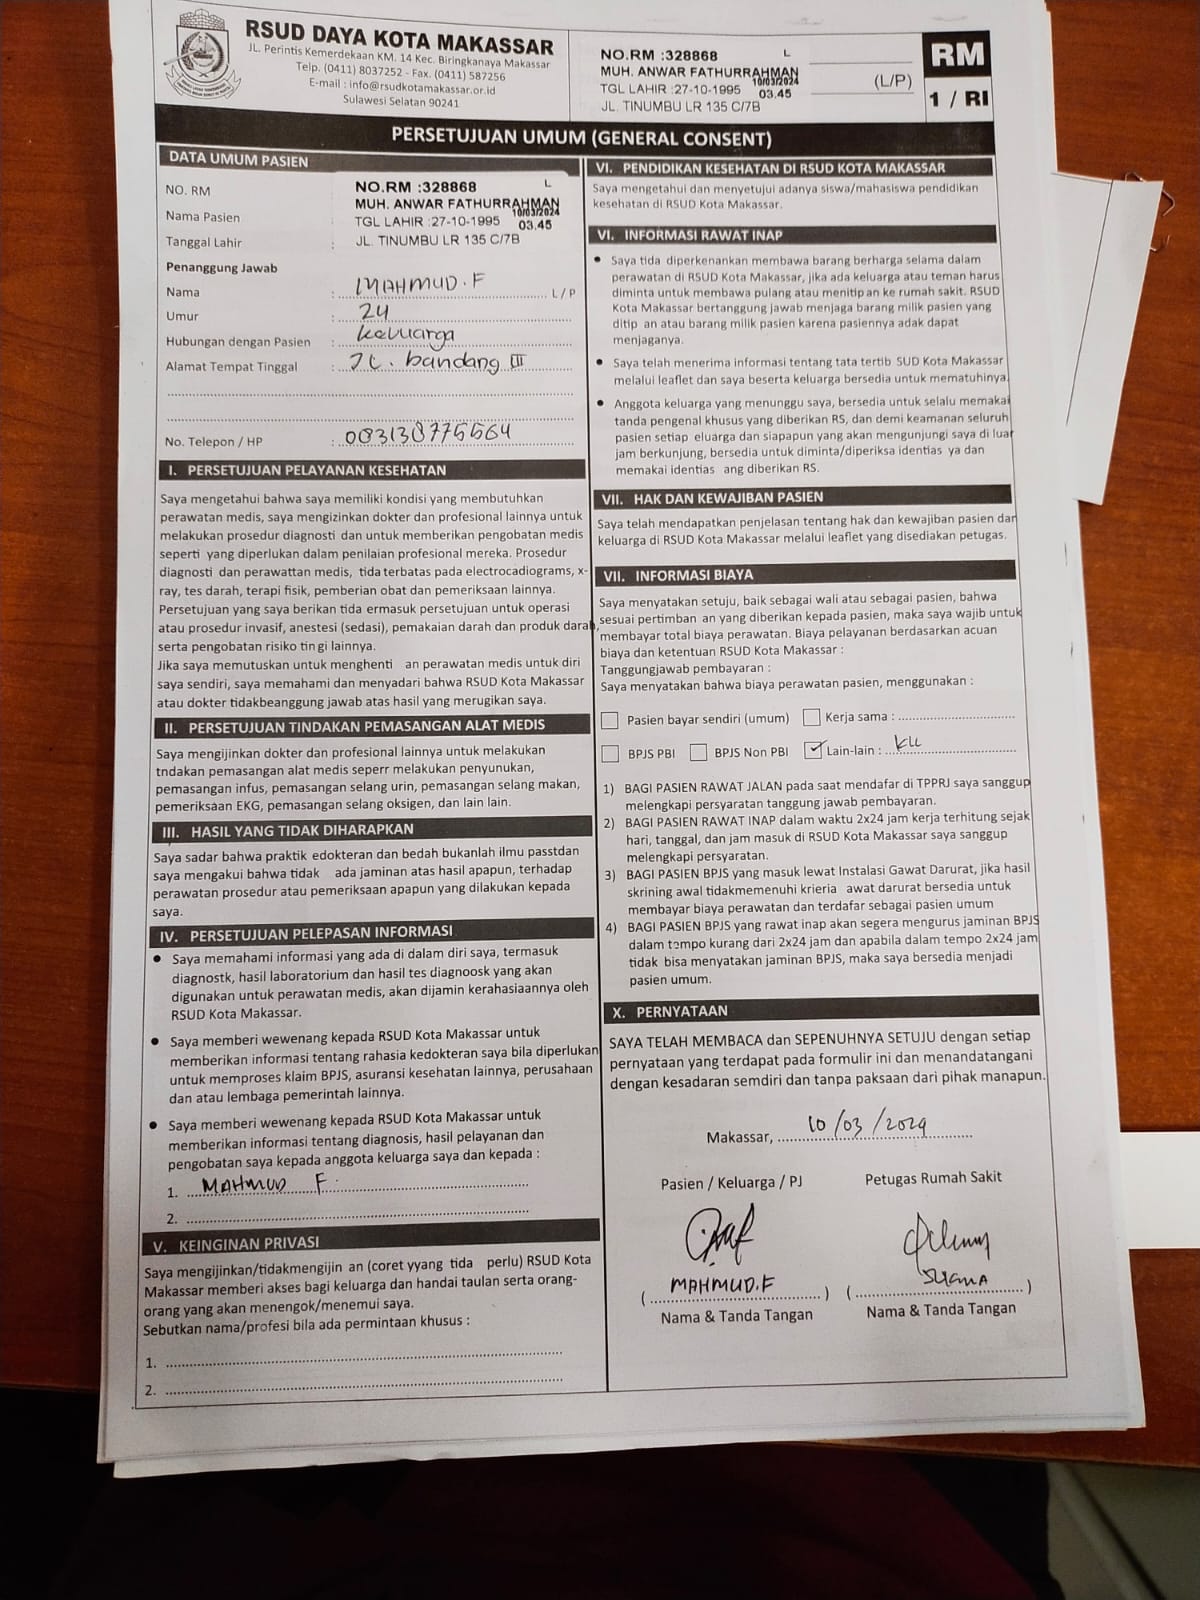 RSUD DAYA KOTA MAKASSAR
JL. Perintis Kemerdekaan KM. 14 Kec. Biringkanaya Makassar
Telp. (0411) 8037252 - Fax. (0411) 587256
E-mail : info@rsudkotamakassar.or.id
Sulawesi Selatan 90241
NO.RM :328868 L
MUH. ANWAR FATHURRAHMAN
10/03/2024
TGL LAHIR :27-10-1995 03.45
JL. TINUMBU LR 135 C/7B
(L/P)
RM
1 / RI
PERSETUJUAN UMUM (GENERAL CONSENT)
DATA UMUM PASIEN
NO. RM
Nama Pasien
Tanggal Lahir :
NO.RM :328868 L
MUH. ANWAR FATHURRAHMAN
10/03/2024
TGL LAHIR :27-10-1995 03.45
JL. TINUMBU LR 135 C/7B
Penanggung Jawab
Nama : MAHMUD.F L / P
Umur : 24
Hubungan dengan Pasien : keluarga
Alamat Tempat Tinggal : JL. bandang III
No. Telepon / HP : 083138775564
I. PERSETUJUAN PELAYANAN KESEHATAN
Saya mengetahui bahwa saya memiliki kondisi yang membutuhkan
perawatan medis, saya mengizinkan dokter dan profesional lainnya untuk
melakukan prosedur diagnosti dan untuk memberikan pengobatan medis
seperti yang diperlukan dalam penilaian profesional mereka. Prosedur
diagnosti dan perawattan medis, tida terbatas pada electrocadiograms, x-
ray, tes darah, terapi fisik, pemberian obat dan pemeriksaan lainnya.
Persetujuan yang saya berikan tida ermasuk persetujuan untuk operasi
atau prosedur invasif, anestesi (sedasi), pemakaian darah dan produk darah,
serta pengobatan risiko tin gi lainnya.
Jika saya memutuskan untuk menghenti an perawatan medis untuk diri
saya sendiri, saya memahami dan menyadari bahwa RSUD Kota Makassar
atau dokter tidakbeanggung jawab atas hasil yang merugikan saya.
II. PERSETUJUAN TINDAKAN PEMASANGAN ALAT MEDIS
Saya mengijinkan dokter dan profesional lainnya untuk melakukan
tndakan pemasangan alat medis seperr melakukan penyunukan,
pemasangan infus, pemasangan selang urin, pemasangan selang makan,
pemeriksaan EKG, pemasangan selang oksigen, dan lain lain.
III. HASIL YANG TIDAK DIHARAPKAN
Saya sadar bahwa praktik edokteran dan bedah bukanlah ilmu passtdan
saya mengakui bahwa tidak ada jaminan atas hasil apapun, terhadap
perawatan prosedur atau pemeriksaan apapun yang dilakukan kepada
saya.
IV. PERSETUJUAN PELEPASAN INFORMASI
• Saya memahami informasi yang ada di dalam diri saya, termasuk
diagnostk, hasil laboratorium dan hasil tes diagnoosk yang akan
digunakan untuk perawatan medis, akan dijamin kerahasiaannya oleh
RSUD Kota Makassar.
• Saya memberi wewenang kepada RSUD Kota Makassar untuk
memberikan informasi tentang rahasia kedokteran saya bila diperlukan
untuk memproses klaim BPJS, asuransi kesehatan lainnya, perusahaan
dan atau lembaga pemerintah lainnya.
• Saya memberi wewenang kepada RSUD Kota Makassar untuk
memberikan informasi tentang diagnosis, hasil pelayanan dan
pengobatan saya kepada anggota keluarga saya dan kepada :
1. MAHMUD F.
2.
V. KEINGINAN PRIVASI
Saya mengijinkan/tidakmengijin an (coret yyang tida perlu) RSUD Kota
Makassar memberi akses bagi keluarga dan handai taulan serta orang-
orang yang akan menengok/menemui saya.
Sebutkan nama/profesi bila ada permintaan khusus :
1.
2.
VI. PENDIDIKAN KESEHATAN DI RSUD KOTA MAKASSAR
Saya mengetahui dan menyetujui adanya siswa/mahasiswa pendidikan
kesehatan di RSUD Kota Makassar.
VI. INFORMASI RAWAT INAP
• Saya tida diperkenankan membawa barang berharga selama dalam
perawatan di RSUD Kota Makassar, jika ada keluarga atau teman harus
diminta untuk membawa pulang atau menitip an ke rumah sakit. RSUD
Kota Makassar bertanggung jawab menjaga barang milik pasien yang
ditip an atau barang milik pasien karena pasiennya adak dapat
menjaganya.
• Saya telah menerima informasi tentang tata tertib SUD Kota Makassar
melalui leaflet dan saya beserta keluarga bersedia untuk mematuhinya.
• Anggota keluarga yang menunggu saya, bersedia untuk selalu memakai
tanda pengenal khusus yang diberikan RS, dan demi keamanan seluruh
pasien setiap eluarga dan siapapun yang akan mengunjungi saya di luar
jam berkunjung, bersedia untuk diminta/diperiksa identias ya dan
memakai identias ang diberikan RS.
VII. HAK DAN KEWAJIBAN PASIEN
Saya telah mendapatkan penjelasan tentang hak dan kewajiban pasien dan
keluarga di RSUD Kota Makassar melalui leaflet yang disediakan petugas.
VII. INFORMASI BIAYA
Saya menyatakan setuju, baik sebagai wali atau sebagai pasien, bahwa
sesuai pertimban an yang diberikan kepada pasien, maka saya wajib untuk
membayar total biaya perawatan. Biaya pelayanan berdasarkan acuan
biaya dan ketentuan RSUD Kota Makassar :
Tanggungjawab pembayaran :
Saya menyatakan bahwa biaya perawatan pasien, menggunakan :
Pasien bayar sendiri (umum) Kerja sama :
BPJS PBI BPJS Non PBI ✓ Lain-lain : KLL
1) BAGI PASIEN RAWAT JALAN pada saat mendafar di TPPRJ saya sanggup
melengkapi persyaratan tanggung jawab pembayaran.
2) BAGI PASIEN RAWAT INAP dalam waktu 2x24 jam kerja terhitung sejak
hari, tanggal, dan jam masuk di RSUD Kota Makassar saya sanggup
melengkapi persyaratan.
3) BAGI PASIEN BPJS yang masuk lewat Instalasi Gawat Darurat, jika hasil
skrining awal tidakmemenuhi krieria awat darurat bersedia untuk
membayar biaya perawatan dan terdafar sebagai pasien umum
4) BAGI PASIEN BPJS yang rawat inap akan segera mengurus jaminan BPJS
dalam tempo kurang dari 2x24 jam dan apabila dalam tempo 2x24 jam
tidak bisa menyatakan jaminan BPJS, maka saya bersedia menjadi
pasien umum.
X. PERNYATAAN
SAYA TELAH MEMBACA dan SEPENUHNYA SETUJU dengan setiap
pernyataan yang terdapat pada formulir ini dan menandatangani
dengan kesadaran semdiri dan tanpa paksaan dari pihak manapun.
Makassar, 10/03/2024
Pasien / Keluarga / PJ Petugas Rumah Sakit
( MAHMUD.F ) ( )
Nama & Tanda Tangan Nama & Tanda Tangan